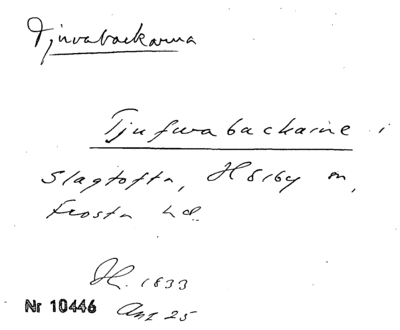 Tjuvabackarna
Tjufwabackarne i
Slagtofta, Hörby sn,
Frosta hd.
1833
Nr 10446 Aug 25